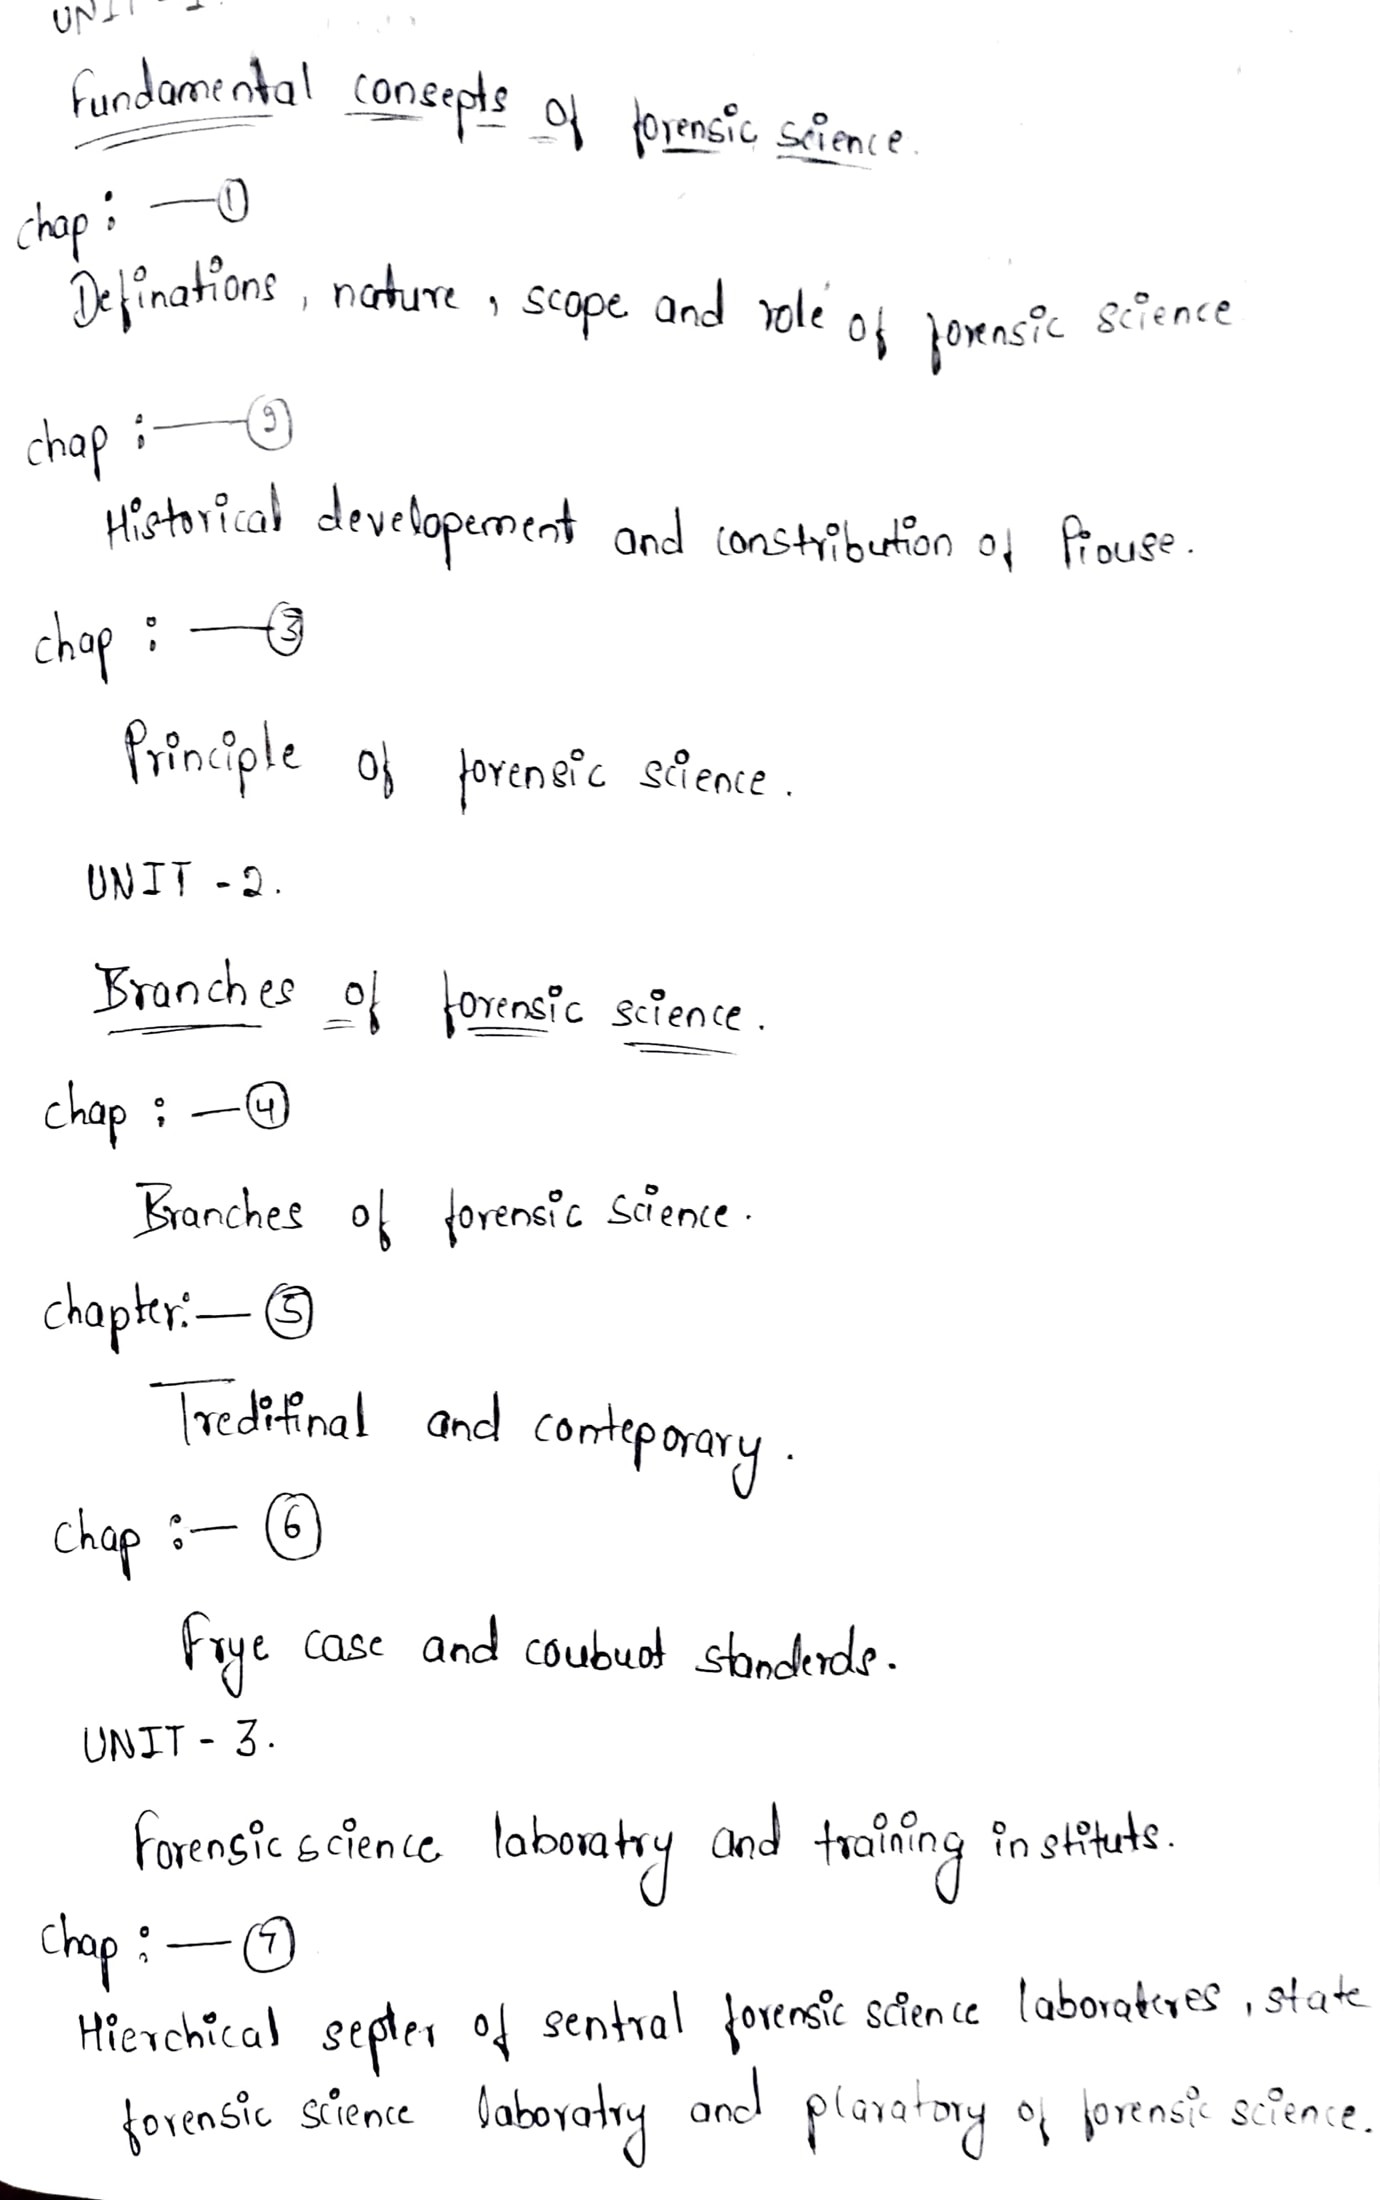 UNIT - 1
Fundamental consepts of forensic science.
chap : — ①
Definations , nature , scope and role of forensic science
chap : — ②
Historical developement and constribution of Piouse.
chap : — ③
Principle of forensic science.
UNIT - 2.
Branches of forensic science.
chap : — ④
Branches of forensic science.
chapter: — ⑤
Treditinal and conteporary.
chap : — ⑥
Frye case and coubuot standerds.
UNIT - 3.
Forensic science laboratry and training instituts.
chap : — ⑦
Hierchical septer of sentral forensic science laborateres , state
forensic science laboratry and plaratory of forensic science.